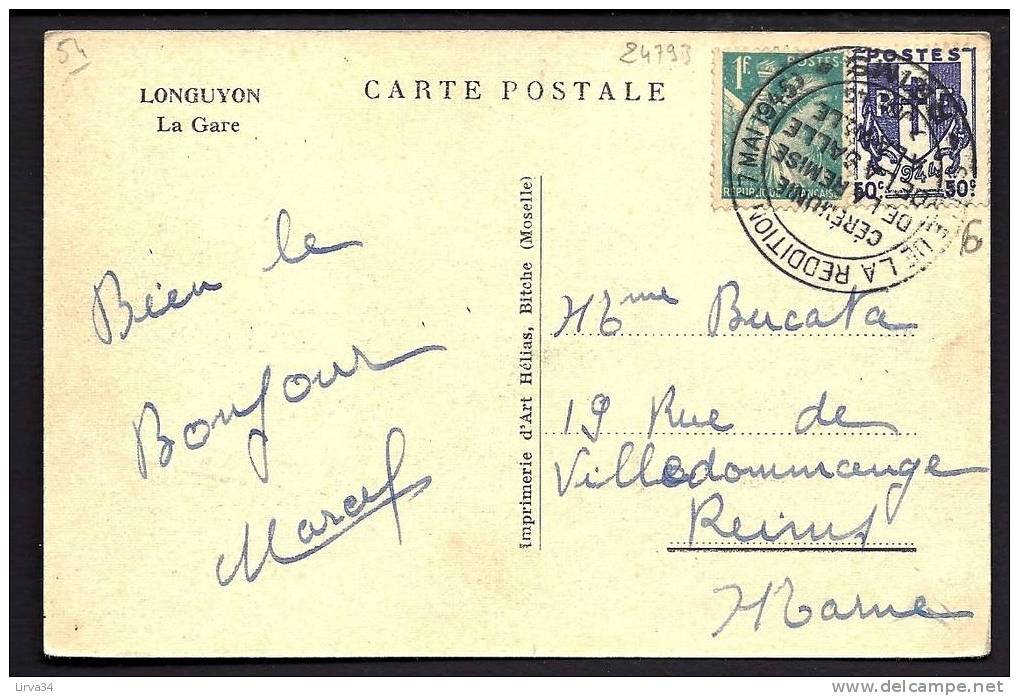 54
24793
LONGUYON
La Gare
CARTE POSTALE
1F.
POSTES
RÉPUBLIQUE FRANÇAISE
POSTES
RF
50c 50c
DE LA REDDITION 7 MAI 1945
CÉRÉMONIE
DE LA REMISE
DE LA SALLE
6
Bien le
Bonjour
Marcel
Imprimerie d'Art Hélias, Bitche (Moselle)
Mme Bucata
19 Rue de
Villedommange
Reims
Marne
Lirva34
delcampe.net